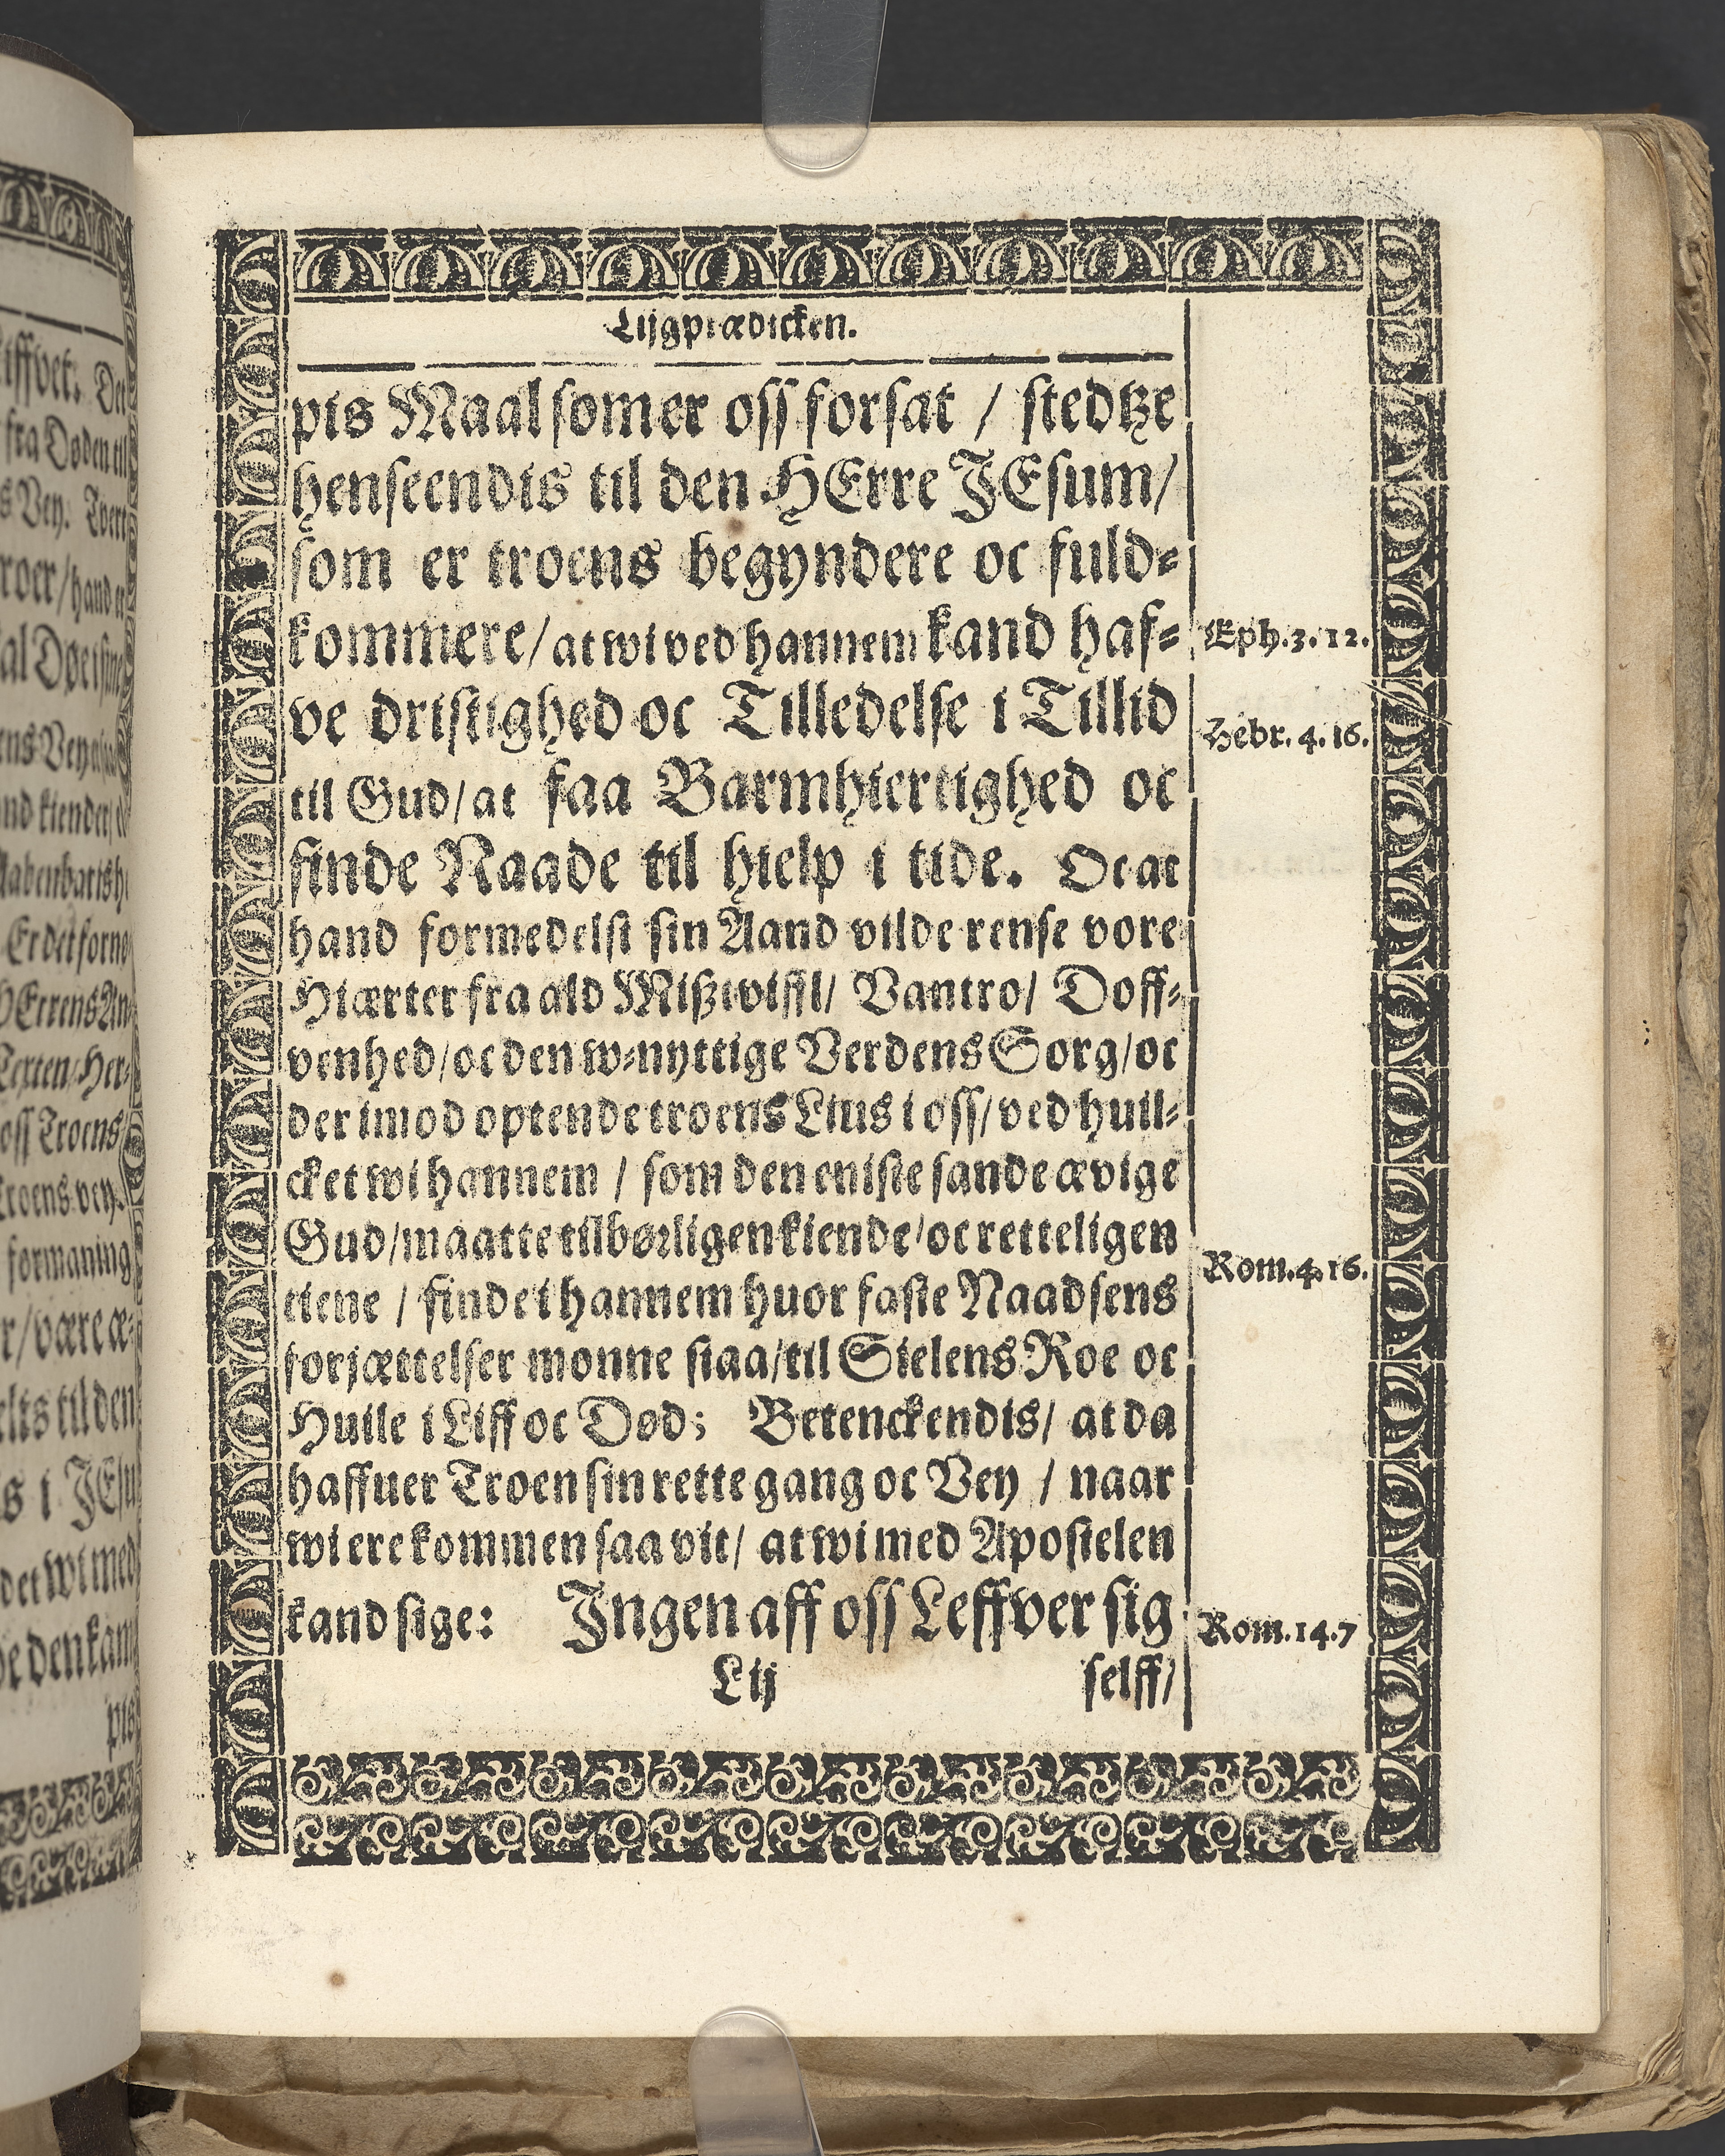 Lijgprædicken.
pis Maal som er oss forsat / stedtze
henseendis til den HErre JEsum/
som er troens begyndere oc fuld=
kommere/ at wi ved hannem kand haf=
ve dristighed oc Tilledelse i Tillid
til Gud/ at faa Barmhiertighed oc
finde Naade til hielp i tide. Oc at
hand formedelst sin Aand vilde rense vore
Hiærter fra ald Mißtwiffl/ Vantro/ Doff=
venhed/ oc den w=nyttige Verdens Sorg/ oc
der imod optende troens Lius i oss/ ved huil=
cket wi hannem / som den eniste sande ævige
Gud/ maatte tilbørligen kiende/ oc retteligen
tiene / finde i hannem huor faste Naadsens
forjættelser monne staa/ til Sielens Roe oc
Huile i Liff oc Død; Betenckendis/ at da
haffuer Troen sin rette gang oc Vey / naar
wi ere kommen saa vit/ at wi med Apostelen
kand sige: Jngen aff oss Leffver sig
L ij selff/
Eph. 3. 12.
Hebr. 4. 16.
Rom. 4. 16.
Rom. 14. 7
iffvet. Det
fra Døden til
s Vey. Tvert
roer/ hand er
ens Vey
nd kiender
Er det forno
HErrens An
Texten/ Her=
oss Troens
troens vey.
formaning
r/ være æ=
elts til den
s i JEsu
det wi med
de den kam
pis